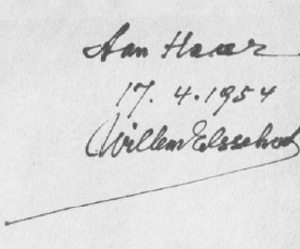 Aan Haar
17.4.1954
Willem Elsschot